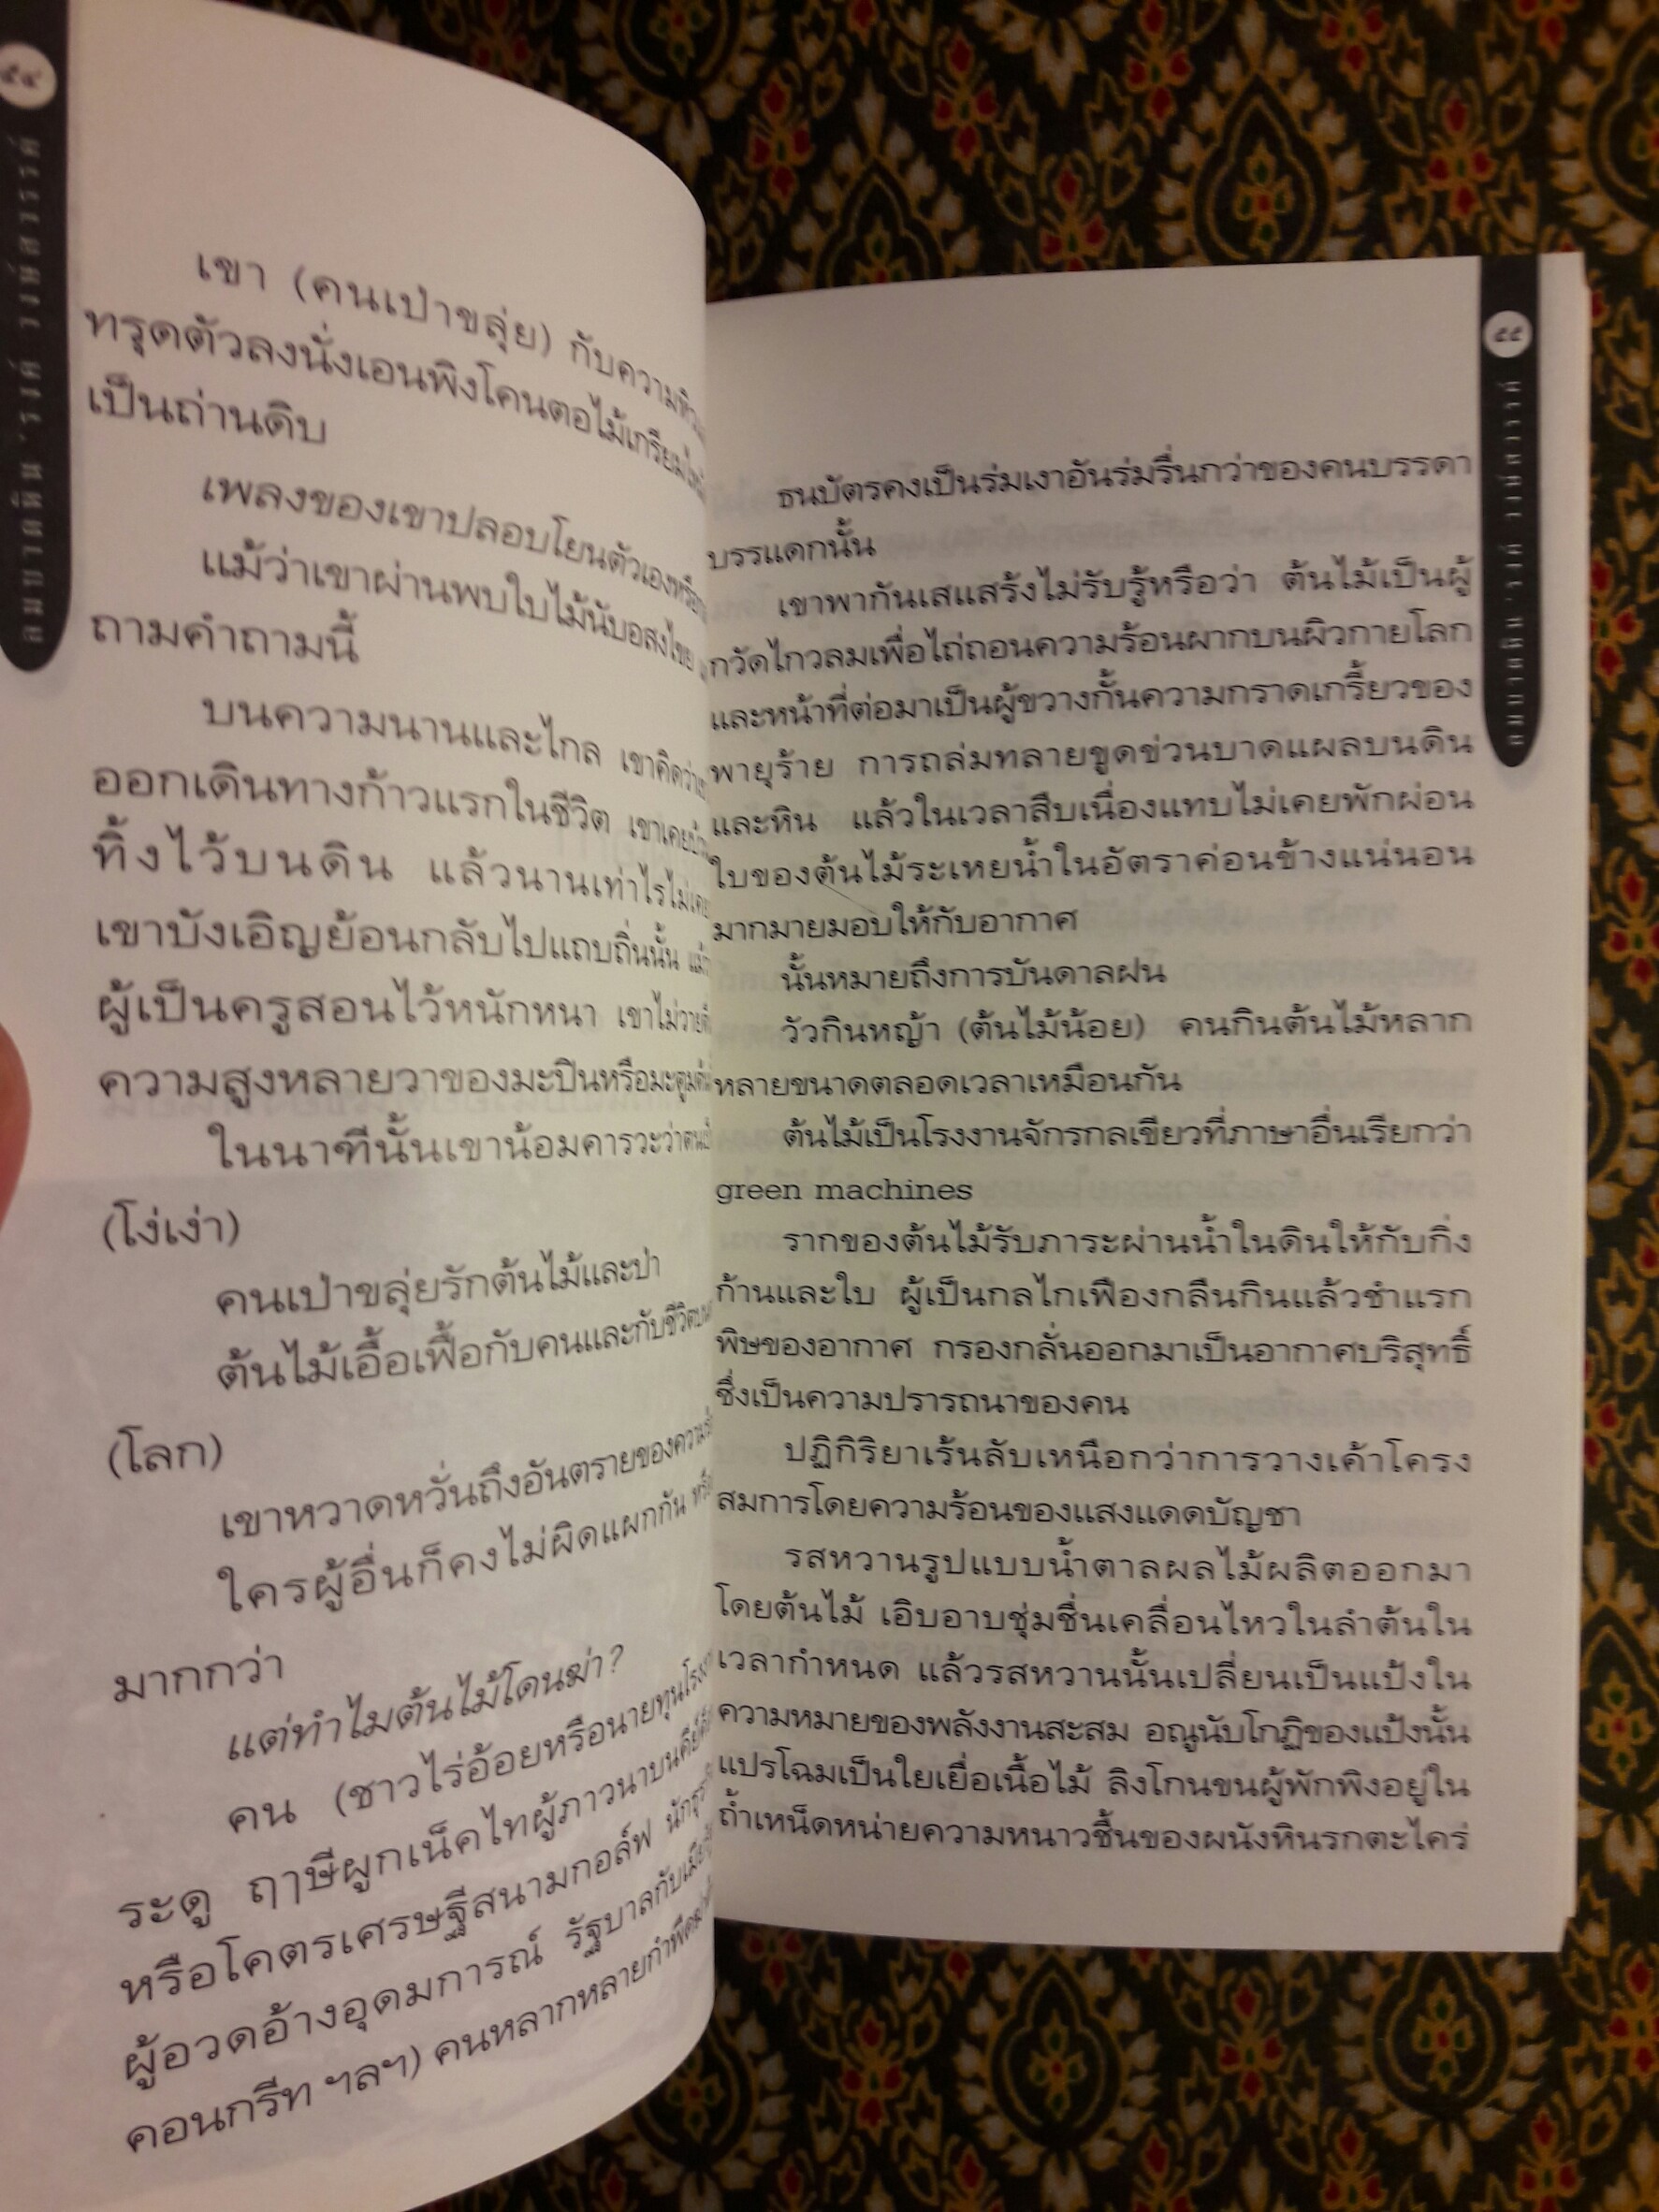 ๕๔
เขา (คนเป่าขลุ่ย) กับความ
ทรุดตัวลงนั่งเอนพิงโคนตอไม้เกรียม
เป็นถ่านดิบ
เพลงของเขาปลอบโยนตัวเองหรือ
แม้ว่าเขาผ่านพบใบไม้นับอสงไขย
ถามคำถามนี้
บนความนานและไกล เขาคิดว่า
ออกเดินทางก้าวแรกในชีวิต เขาเคย
ทิ้งไว้บนดิน แล้วนานเท่าไรไม่เคย
เขาบังเอิญย้อนกลับไปแถบถิ่นนั้น
ผู้เป็นครูสอนไว้หนักหนา เขาไม่วาย
ความสูงหลายวาของมะปินหรือมะตูม
ในนาฑีนั้นเขาน้อมคารวะว่าตน
(โง่เง่า)
คนเป่าขลุ่ยรักต้นไม้และป่า
ต้นไม้เอื้อเฟื้อกับคนและกับชีวิตบน
(โลก)
เขาหวาดหวั่นถึงอันตรายของความ
ใครผู้อื่นก็คงไม่ผิดแผกกัน
มากกว่า
แต่ทำไมต้นไม้โดนฆ่า?
คน (ชาวไร่อ้อยหรือนายทุนโรง
ระดู ฤๅษีผูกเน็คไทผู้ภาวนาบน
หรือโคตรเศรษฐีสนามกอล์ฟ
ผู้อวดอ้างอุดมการณ์ รัฐบาลกับเมีย
คอนกรีท ฯลฯ) คนหลากหลายกำพืด
๕๕
ธนบัตรคงเป็นร่มเงาอันร่มรื่นกว่าของคนบรรดา
บรรแดกนั้น
เขาพากันเสแสร้งไม่รับรู้หรือว่า ต้นไม้เป็นผู้
กวัดไกวลมเพื่อไถ่ถอนความร้อนผากบนผิวกายโลก
และหน้าที่ต่อมาเป็นผู้ขวางกั้นความกราดเกรี้ยวของ
พายุร้าย การถล่มทลายขูดข่วนบาดแผลบนดิน
และหิน แล้วในเวลาสืบเนื่องแทบไม่เคยพักผ่อน
ใบของต้นไม้ระเหยน้ำในอัตราค่อนข้างแน่นอน
มากมายมอบให้กับอากาศ
นั้นหมายถึงการบันดาลฝน
วัวกินหญ้า (ต้นไม้น้อย) คนกินต้นไม้หลาก
หลายขนาดตลอดเวลาเหมือนกัน
ต้นไม้เป็นโรงงานจักรกลเขียวที่ภาษาอื่นเรียกว่า
green machines
รากของต้นไม้รับภาระผ่านน้ำในดินให้กับกิ่ง
ก้านและใบ ผู้เป็นกลไกเฟืองกลืนกินแล้วชำแรก
พิษของอากาศ กรองกลั่นออกมาเป็นอากาศบริสุทธิ์
ซึ่งเป็นความปรารถนาของคน
ปฏิกิริยาเร้นลับเหนือกว่าการวางเค้าโครง
สมการโดยความร้อนของแสงแดดบัญชา
รสหวานรูปแบบน้ำตาลผลไม้ผลิตออกมา
โดยต้นไม้ เอิบอาบชุ่มชื่นเคลื่อนไหวในลำต้นใน
เวลากำหนด แล้วรสหวานนั้นเปลี่ยนเป็นแป้งใน
ความหมายของพลังงานสะสม อณูนับโกฏิของแป้งนั้น
แปรโฉมเป็นใยเยื่อเนื้อไม้ ลิงโกนขนผู้พักพิงอยู่ใน
ถ้ำเหน็ดหน่ายความหนาวชื้นของผนังหินรกตะไคร่